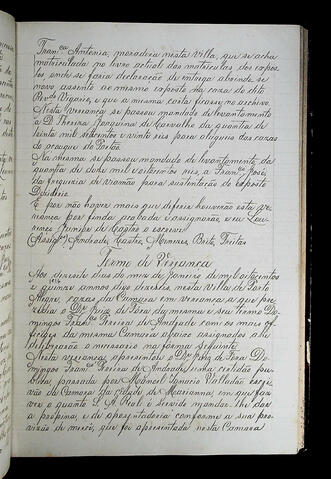 Fran.ca Antonia, moradora nesta Villa, que se acha
matriculada no livro actual das matriculas dos expos-
tos, onde se faria declaração de entrega abrindo se
novo assento ao mesmo exposto na caza do dito
Rev.do Vigario, e que a mesma carta ficasse no archivo.
Nesta vereança se passou mandado de levantamento
a D. Thereza Joaquina de Carvalho da quantia de
trinta mil seiscentos e vinte reis para alugueis das cazas
do açougue do Portão.
Na mesma se passou mandado de levantamento da
quantia de doze mil oitocentos reis, a Fran.co José
da freguezia de Viamão para sustentação do exposto
Desiderio.
E por não haver mais que deferir houverão esta ve-
reança por finda, acabada e assignarão e eu Lou-
renço Junior de Castro o escrevi
(Assig.os) Andrade, Castro, Menezes, Brito, Freitas
Termo de Vereança
Aos dezesete dias do mez de Janeiro de mil oitocentos
1816
e quinze annos digo dezeseis, nesta Villa de Porto
Alegre, cazas da Camara em vereança a que pre-
zedio o D.or Juiz de Fora da mesma e seu Termo Do-
mingos Fran.co Pereira de Andrade com os mais of-
ficiaes da mesma Camara abaixo assignados ahi
deliberarão o necessario na forma seguinte
Nesta vereança apresentou o D.or Juiz de Fora Do-
mingos Fran.co Pereira de Andrade huma certidão pu-
blica, passada por Manoel Ignacio Valladão escri-
vão da Camara da cidade de Marianna, em que faz
ver o quanto S. A. Real é servido mandar lhe dar
a propina, e de aposentadoria conforme a sua pro-
vizão de mercê, que foi apresentada nesta Camara